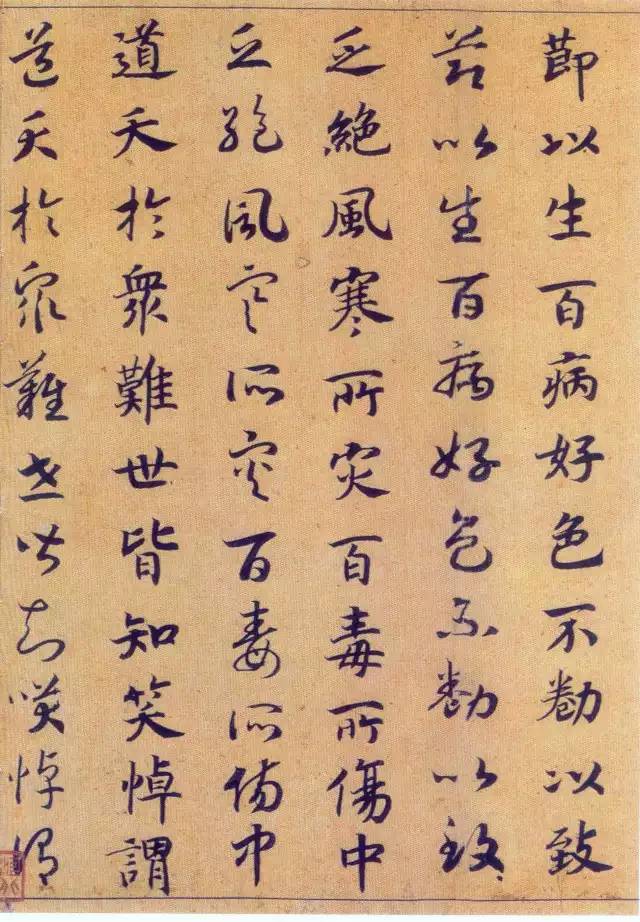 莭以生百病好色不勌以致
莭以生百病好色不勌以致
乏絶風寒所灾百毒所傷中
乏絶風寒所灾百毒所傷中
道夭於衆難世皆知笑悼謂
道夭於衆難世皆知笑悼謂